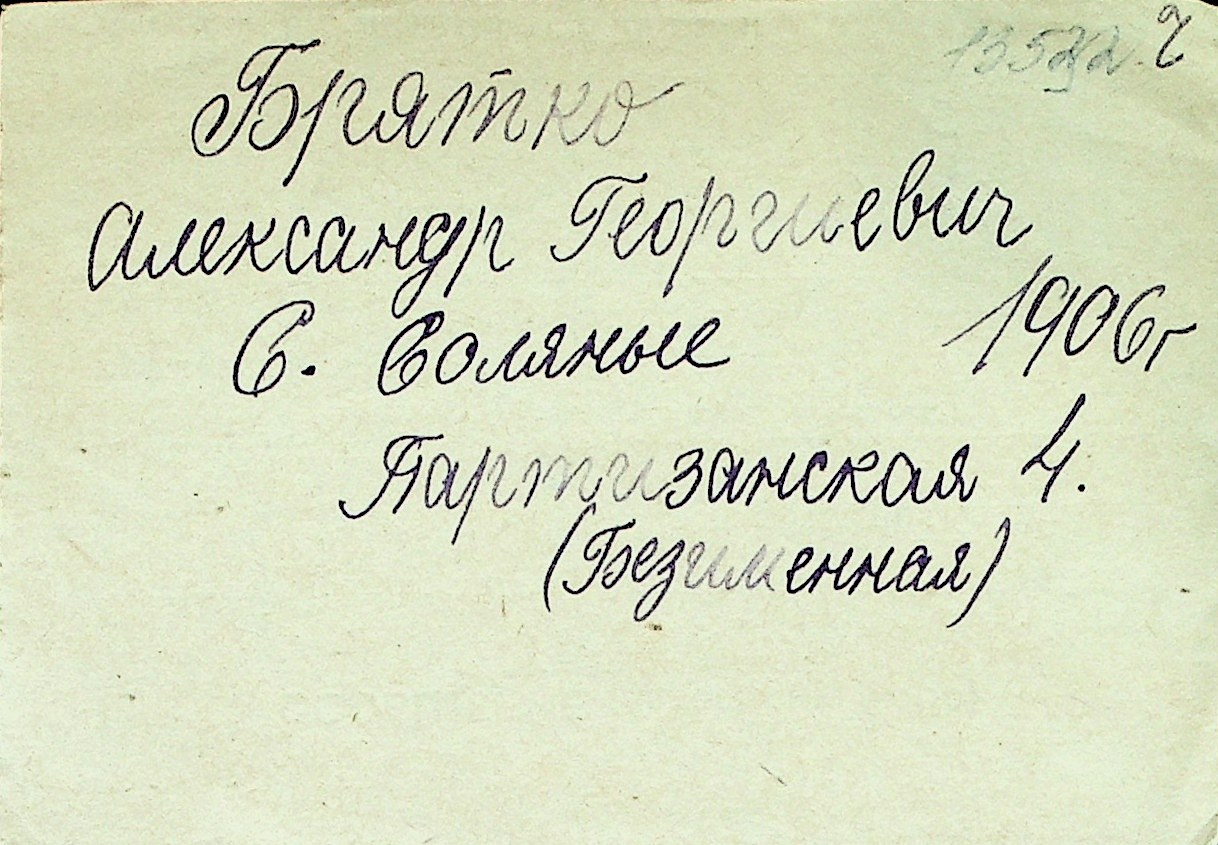 Брятко
Александр Георгиевич
С. Соляные 1906г
Партизанская 4.
(Безименная)